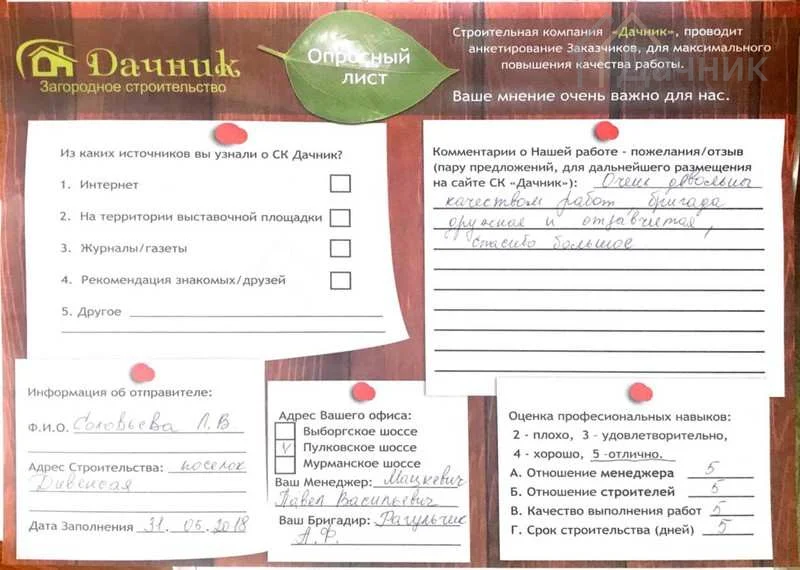 Дачник
Загородное строительство
Опросный
лист
Строительная компания «Дачник», проводит
анкетирование Заказчиков, для максимального
повышения качества работы.
Дачник
Ваше мнение очень важно для нас.
Из каких источников вы узнали о СК Дачник?
1. Интернет
2. На территории выставочной площадки
3. Журналы/газеты
4. Рекомендация знакомых/друзей
5. Другое
Комментарии о Нашей работе - пожелания/отзыв
(пару предложений, для дальнейшего размещения
на сайте СК «Дачник»): Очень довольны
качеством работ, бригада
дружная и отзывчивая,
спасибо большое
Информация об отправителе:
Ф.И.О. Соловьева Л.В
Адрес Строительства: поселок
Дивенская
Дата Заполнения 31.05.2018
Адрес Вашего офиса:
Выборгское шоссе
V Пулковское шоссе
Мурманское шоссе
Ваш Менеджер: Мацкевич
Павел Васильевич
Ваш Бригадир: Рагульчик
А.Ф.
Оценка професиональных навыков:
2 - плохо, 3 - удовлетворительно,
4 - хорошо, 5 -отлично.
А. Отношение менеджера 5
Б. Отношение строителей 5
В. Качество выполнения работ 5
Г. Срок строительства (дней) 5